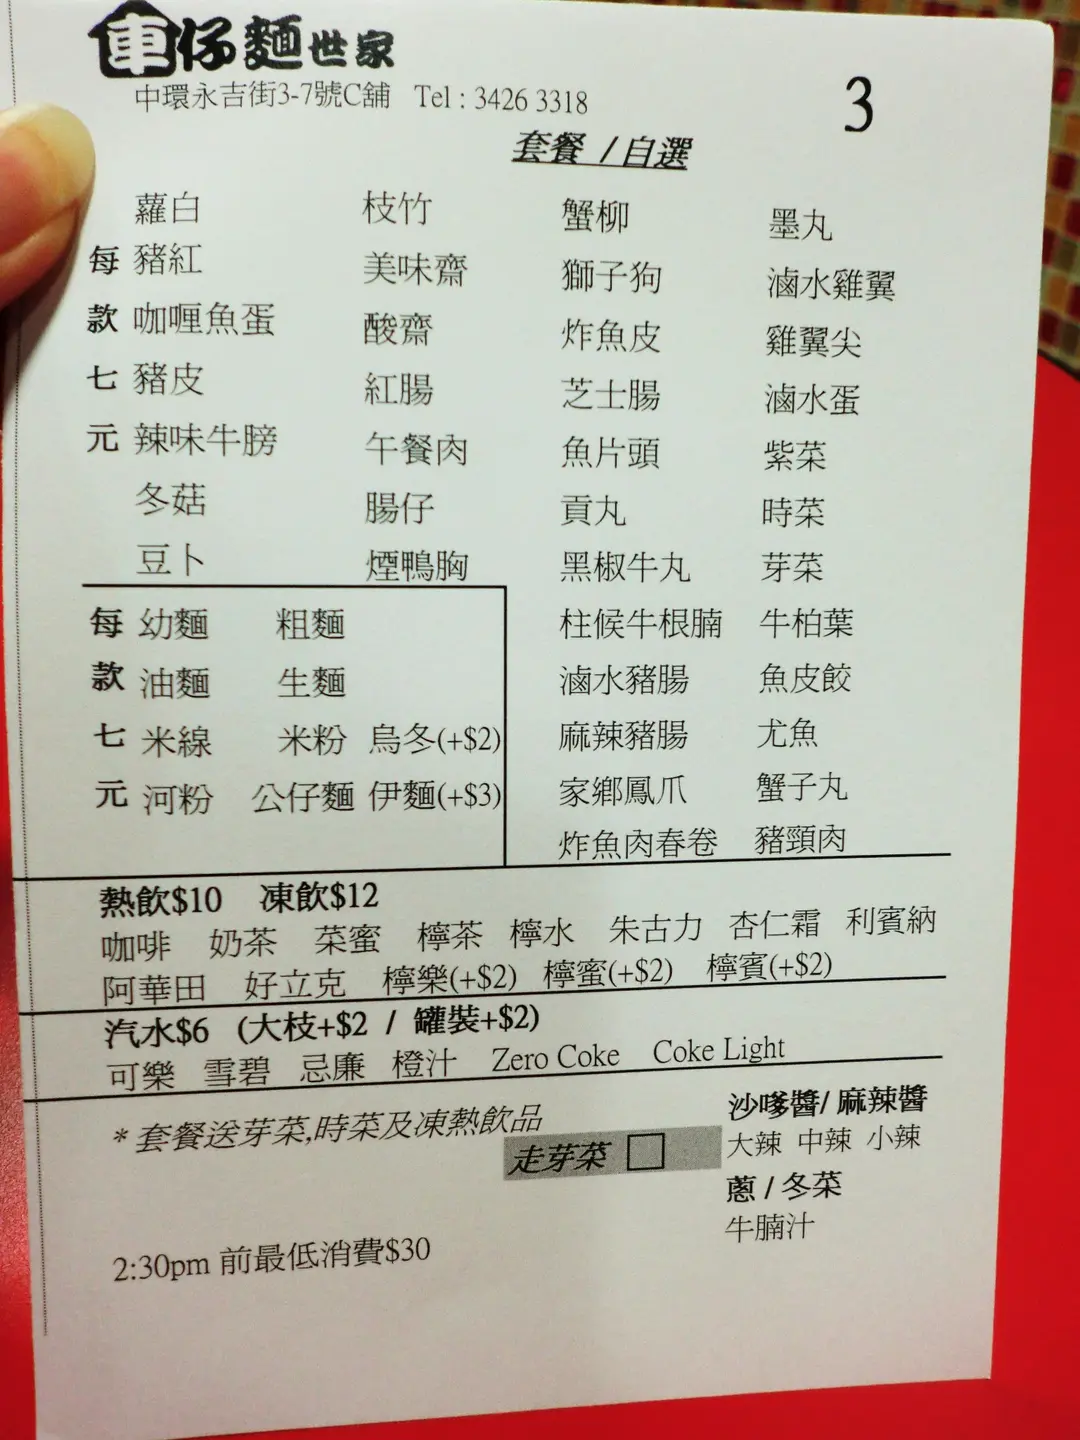 車仔麵世家
中環永吉街3-7號C舖 Tel : 3426 3318
3
套餐 / 自選
蘿白 枝竹 蟹柳 墨丸
每 豬紅 美味齋 獅子狗 滷水雞翼
款 咖喱魚蛋 酸齋 炸魚皮 雞翼尖
七 豬皮 紅腸 芝士腸 滷水蛋
元 辣味牛膀 午餐肉 魚片頭 紫菜
冬菇 腸仔 貢丸 時菜
豆卜 煙鴨胸 黑椒牛丸 芽菜
每 幼麵 粗麵 柱候牛根腩 牛柏葉
款 油麵 生麵 滷水豬腸 魚皮餃
七 米線 米粉 烏冬(+$2) 麻辣豬腸 尤魚
元 河粉 公仔麵 伊麵(+$3) 家鄉鳳爪 蟹子丸
炸魚肉春卷 豬頸肉
熱飲$10 凍飲$12
咖啡 奶茶 菜蜜 檸茶 檸水 朱古力 杏仁霜 利賓納
阿華田 好立克 檸樂(+$2) 檸蜜(+$2) 檸賓(+$2)
汽水$6 (大枝+$2 / 罐裝+$2)
可樂 雪碧 忌廉 橙汁 Zero Coke Coke Light
* 套餐送芽菜,時菜及凍熱飲品
走芽菜
沙嗲醬/ 麻辣醬
大辣 中辣 小辣
蔥 / 冬菜
牛腩汁
2:30pm 前最低消費$30